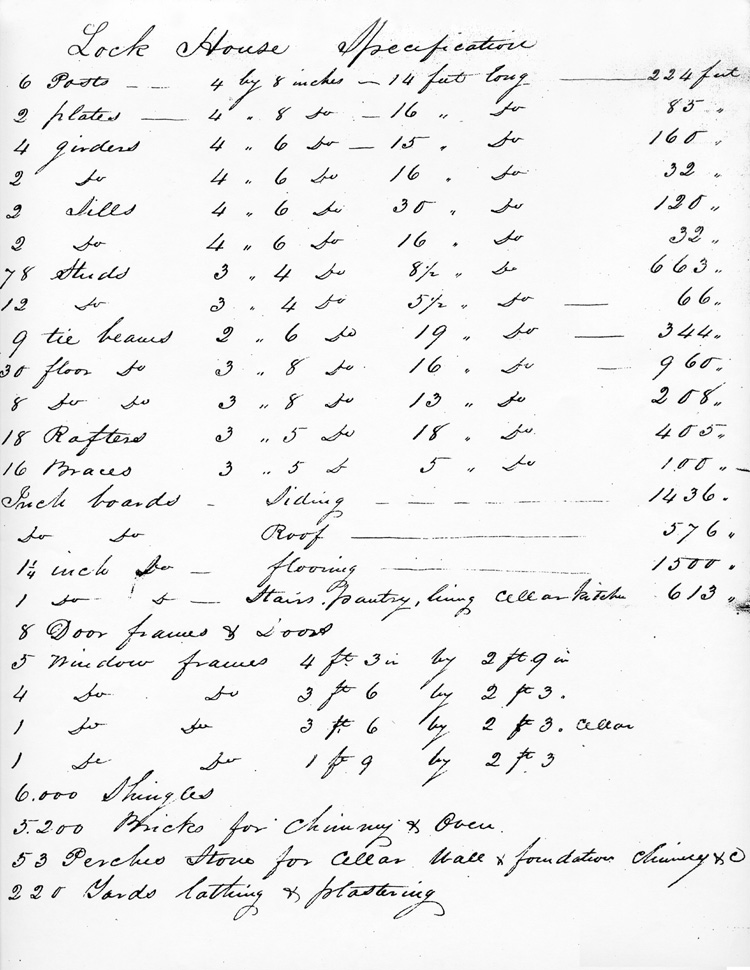 Lock House Specification
6 Posts — — 4 by 8 inches — 14 feet long — 224 feet
2 plates — 4 " 8 Do — 16 " Do 85 "
4 girders 4 " 6 Do — 15 " Do 160 "
2 Do 4 " 6 Do 16 " Do 32 "
2 Sills 4 " 6 Do 30 " Do 120 "
2 Do 4 " 6 Do 16 " Do 32 "
78 Studs 3 " 4 Do 8 1/2 " Do 663 "
12 Do 3 " 4 Do 5 1/2 " Do — 66 "
9 tie beams 2 " 6 Do 19 " Do — 344 "
30 floor Do 3 " 8 Do 16 " Do — 960 "
8 Do Do 3 " 8 Do 13 " Do 208 "
18 Rafters 3 " 5 Do 18 " Do 405 "
16 Braces 3 " 5 D 5 " Do 100 " —
Inch boards - Siding — — — 1436 "
Do Do Roof — 576 "
1 1/4 inch Do — flooring — 1500 "
1 Do D — Stairs. pantry, lining Cellar Kitchen 613 "
8 Door frames & Doors
5 Window frames 4 ft 3 in by 2 ft 9 in
4 Do Do 3 ft 6 by 2 ft 3.
1 Do Do 3 ft 6 by 2 ft 3. Cellar
1 Do Do 1 ft 9 by 2 ft 3
6.000 Shingles
5.200 Bricks for Chimney & Oven.
53 Perches Stone for Cellar Wall & foundation Chimney & C
220 Yards lathing & plastering